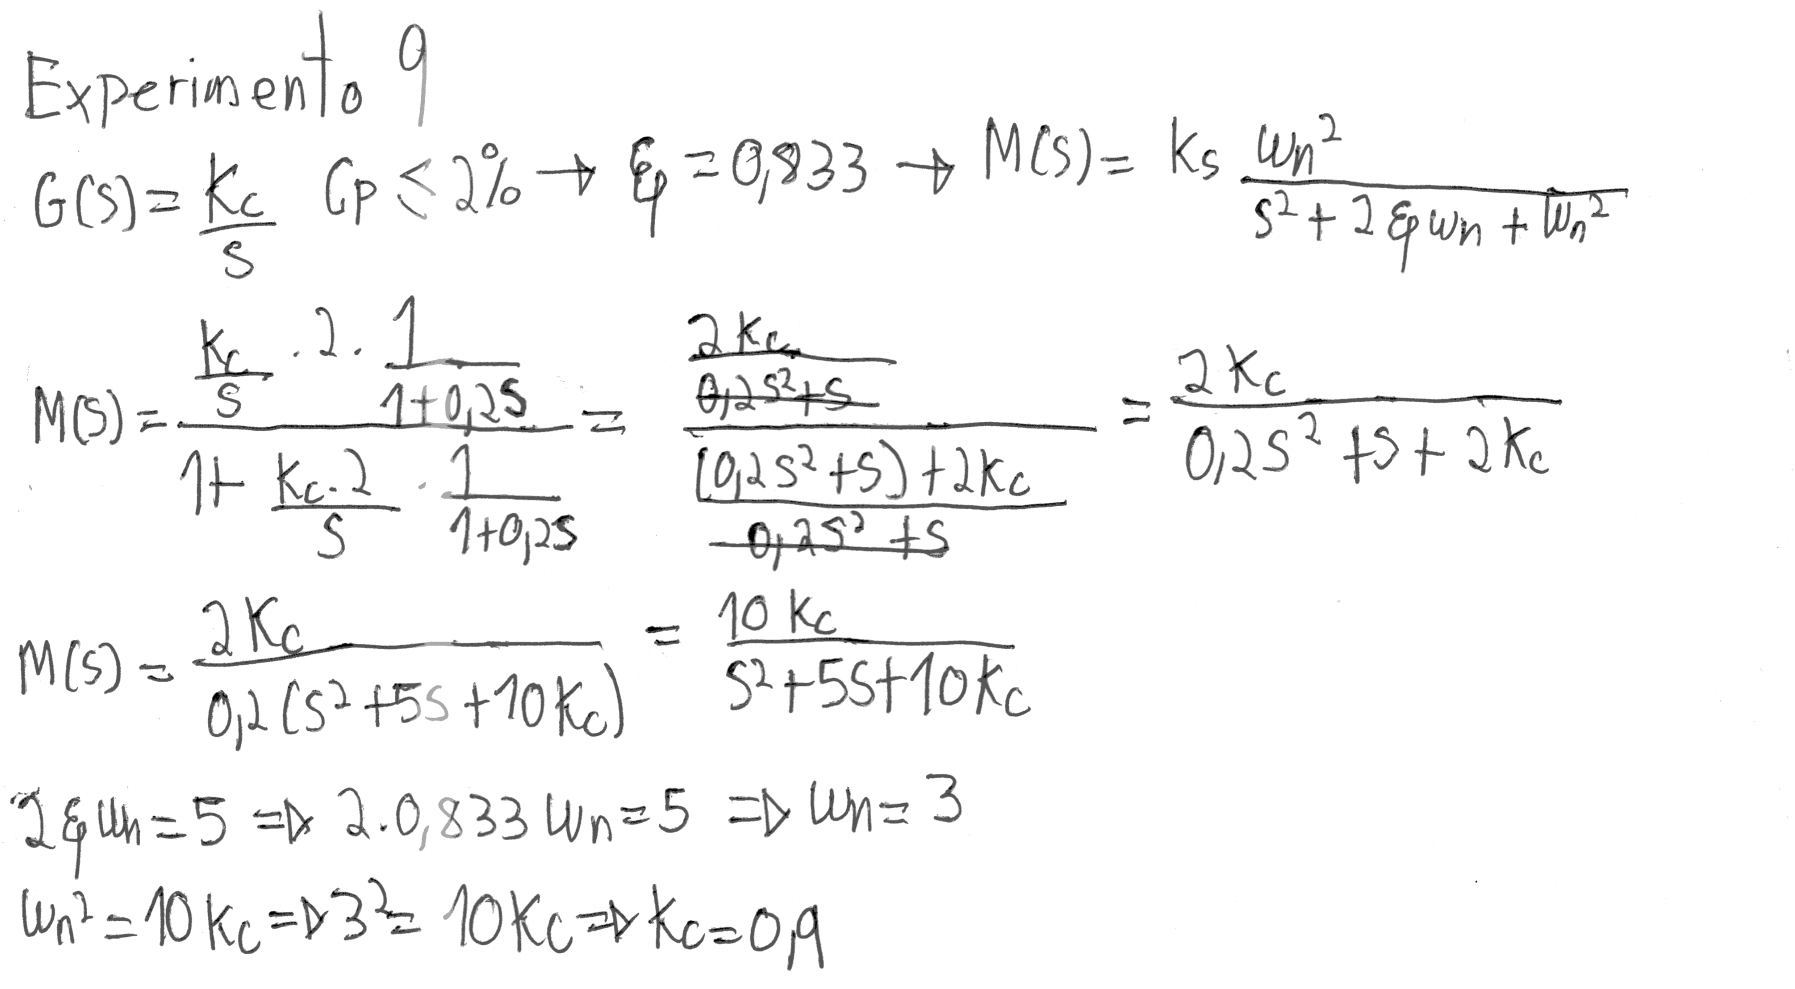 Experimento 9
G(s) = Kc/s Cp ≤ 2% → ξ = 0,833 → M(s) = Ks wn²/(s² + 2ξwn + wn²)
M(s) = (Kc/s . 2 . 1/(1+0,2s))/(1+ Kc.2/s . 1/(1+0,2s)) = (2Kc/(0,2s²+s))/(((0,2s²+s)+2Kc)/(0,2s²+s)) = 2Kc/(0,2s² +s+ 2Kc)
M(s) = 2Kc/(0,2(s²+5s+10Kc)) = 10Kc/(s²+5s+10Kc)
2ξwn = 5 ⇒ 2.0,833wn = 5 ⇒ wn = 3
wn² = 10Kc ⇒ 3² = 10Kc ⇒ Kc = 0,9